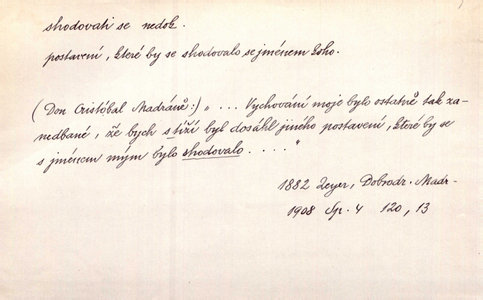 shodovati se nedok.
postavení, které by se shodovalo se jménem koho.
(Don Cristóbal Madráně:) „ ... Vychování moje bylo ostatně tak za-
nedbané, že bych stíží byl dosáhl jiného postavení, které by se
s jménem mým bylo shodovalo . . . . "
1882 Zeyer, Dobrodr. Madr-
1908 Sp. 4 120, 13